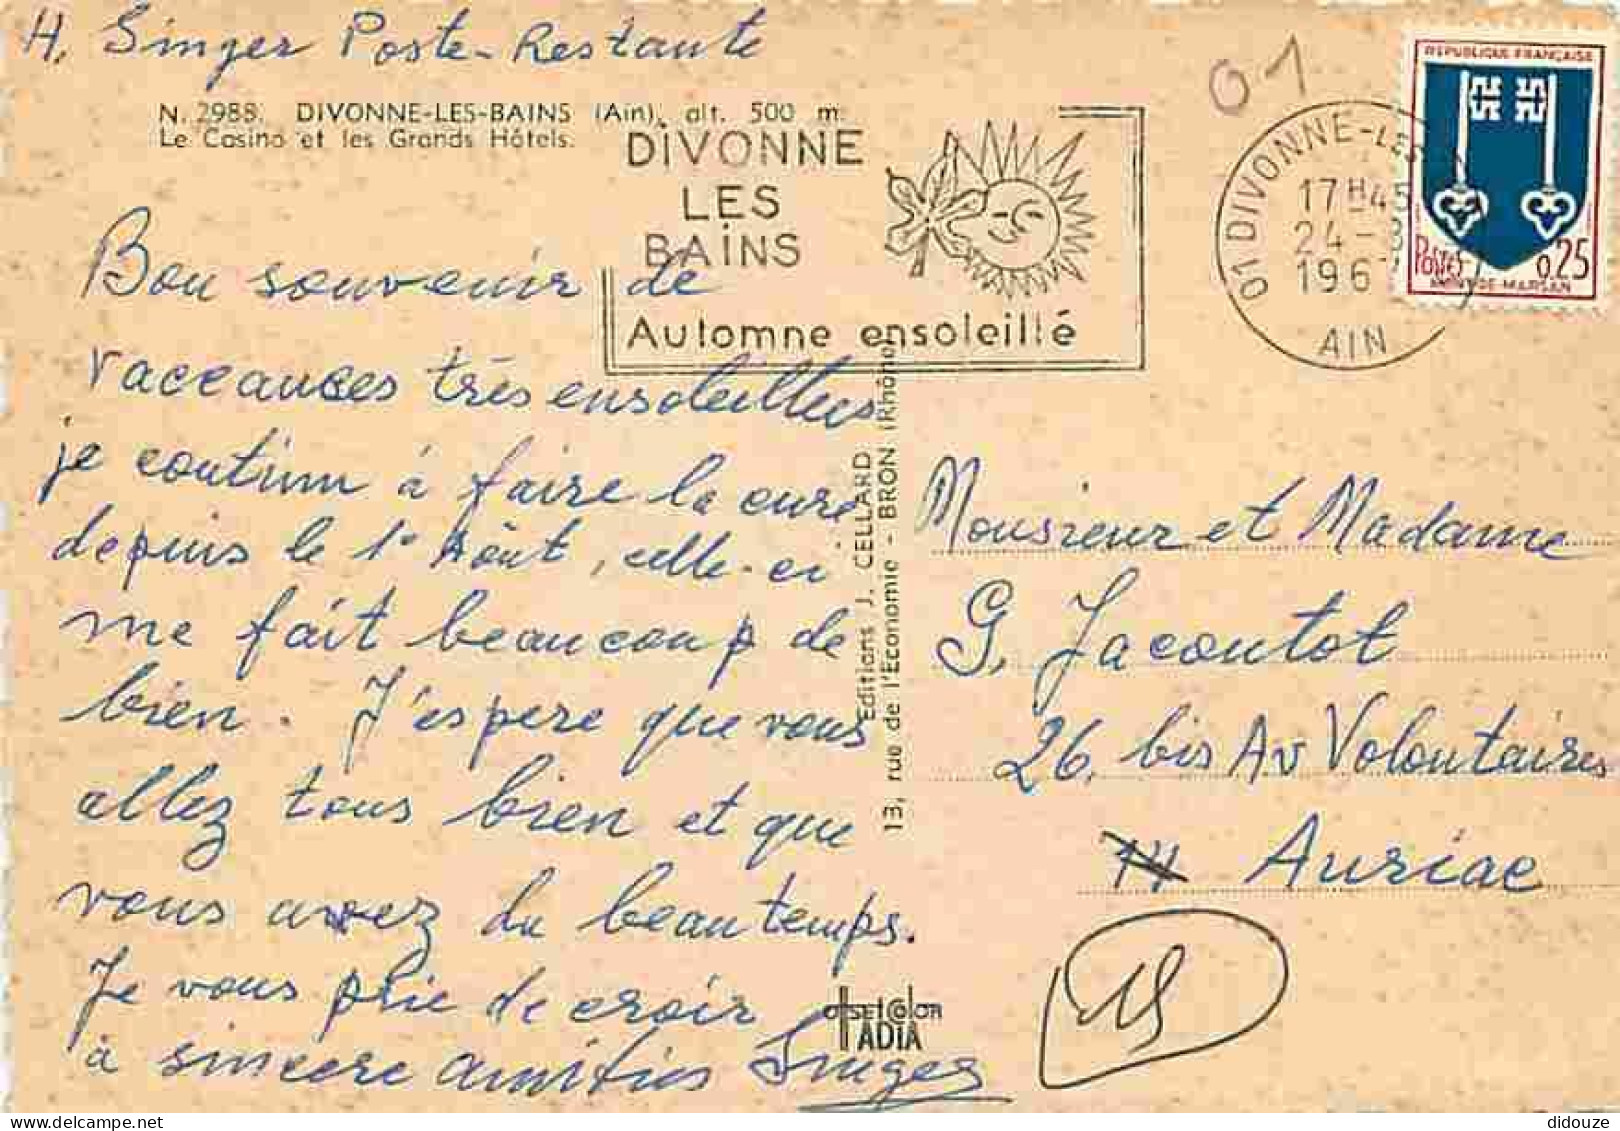 H. Singer Poste-Restante
01
N. 2988. DIVONNE-LES-BAINS (Ain), alt. 500 m.
Le Casino et les Grands Hôtels.
DIVONNE
LES
BAINS
Automne ensoleillé
01 DIVONNE-LES
17H45
24-8
196
AIN
REPUBLIQUE FRANÇAISE
POSTES 0,25
MONT-DE-MARSAN
Bon souvenir de
vaccances très ensoleillées
je continu à faire la cure
depuis le 1er Aôut, celle-ci
me fait beaucoup de
bien. J'espere que vous
allez tous bien et que
vous avez du beau temps.
Je vous prie de croir
à sincere amitiés Singer
Editions J. CELLARD
13, rue de l'Economie - BRON (Rhône)
OFFSET COLOR
ADIA
Monsieur et Madame
G. Jacoutot
26, bis Av Volontaires
Auriac
15
didouze